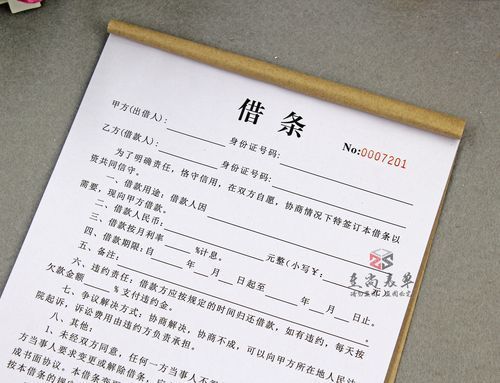 借条
No:0007201
甲方(出借人): 身份证号码:
乙方(借款人): 身份证号码:
为了明确责任，恪守信用，在双方自愿，协商情况下特签订本借条以
资共同信守。
一、借款用途：借款人因
需要，现向甲方借款。
二、借款人民币： 元整(小写￥: 元)
三、借款按月利率 %计息。
四、借款期限：自 年 月 日起至 年 月 日止。
五、备注：
六、违约责任：借款方应按规定的时间归还借款，如有违约，每天按
欠款金额 %支付违约金。
七、争议解决方式：协商解决，协商不成，可以向甲方所在地人民法
院起诉，诉讼费用由违约方负责承担。
八、其他：
1、未经双方同意，任何一方当事人不
方当事人要求变更或解除借条，应
成书面协议。本借条变
按本借条的规
至尚表单